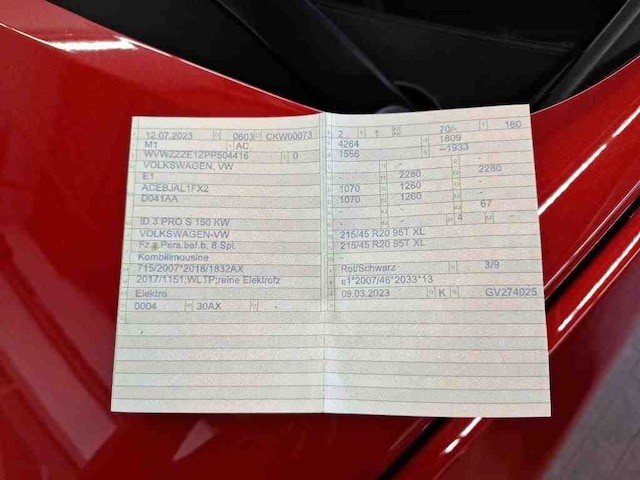 12.07.2023 0603 CKW00073
M1 AC
WVWZZZE1ZPP504416 0
VOLKSWAGEN, VW
E1
ACEBJAL1FX2
D041AA
-
ID.3 PRO S 150 KW
VOLKSWAGEN-VW
Fz.z.Pers.bef.b. 8 Spl.
Kombilimousine
715/2007*2018/1832AX
2017/1151;WLTP;reine Elektrofz
Elektro
0004 30AX -
2 1 70/- 160
4264 1809
1556 --1933
- 2280 2280
1070 1260 -
1070 1260 -
- - 67
- - 4 -
215/45 R20 95T XL
215/45 R20 95T XL
-
Rot/Schwarz 3/9
e1*2007/46*2033*13
09.03.2023 K GV274025